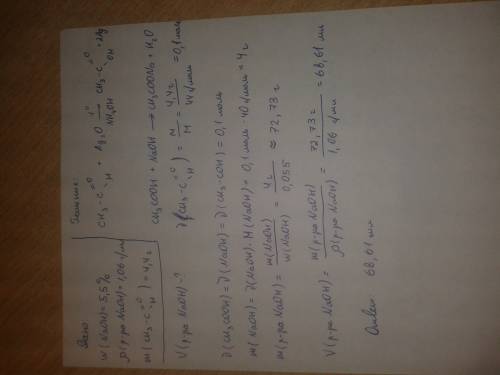 Дано:
w(NaOH)=5,5%
ρ(р-ра NaOH)=1,06 г/мл
m(CH₃-C=O-H)=4,4г
V(р-ра NaOH)-?
Решение:
CH₃-C=O-H + Ag₂O —t°, NH₄OH→ CH₃-C=O-OH + 2Ag
CH₃COOH + NaOH → CH₃COONa + H₂O
ν(CH₃-C=O-H) = m/M = 4,4г/44г/моль = 0,1 моль
ν(CH₃COOH) = ν(NaOH) = ν(CH₃-COH) = 0,1 моль
m(NaOH) = ν(NaOH)·M(NaOH) = 0,1 моль·40г/моль = 4г
m(р-ра NaOH) = m(NaOH)/w(NaOH) = 4г/0,055 ≈ 72,73 г
V(р-ра NaOH) = m(р-ра NaOH)/ρ(р-ра NaOH) = 72,73г/1,06 г/мл = 68,61 мл
Ответ: 68,61 мл